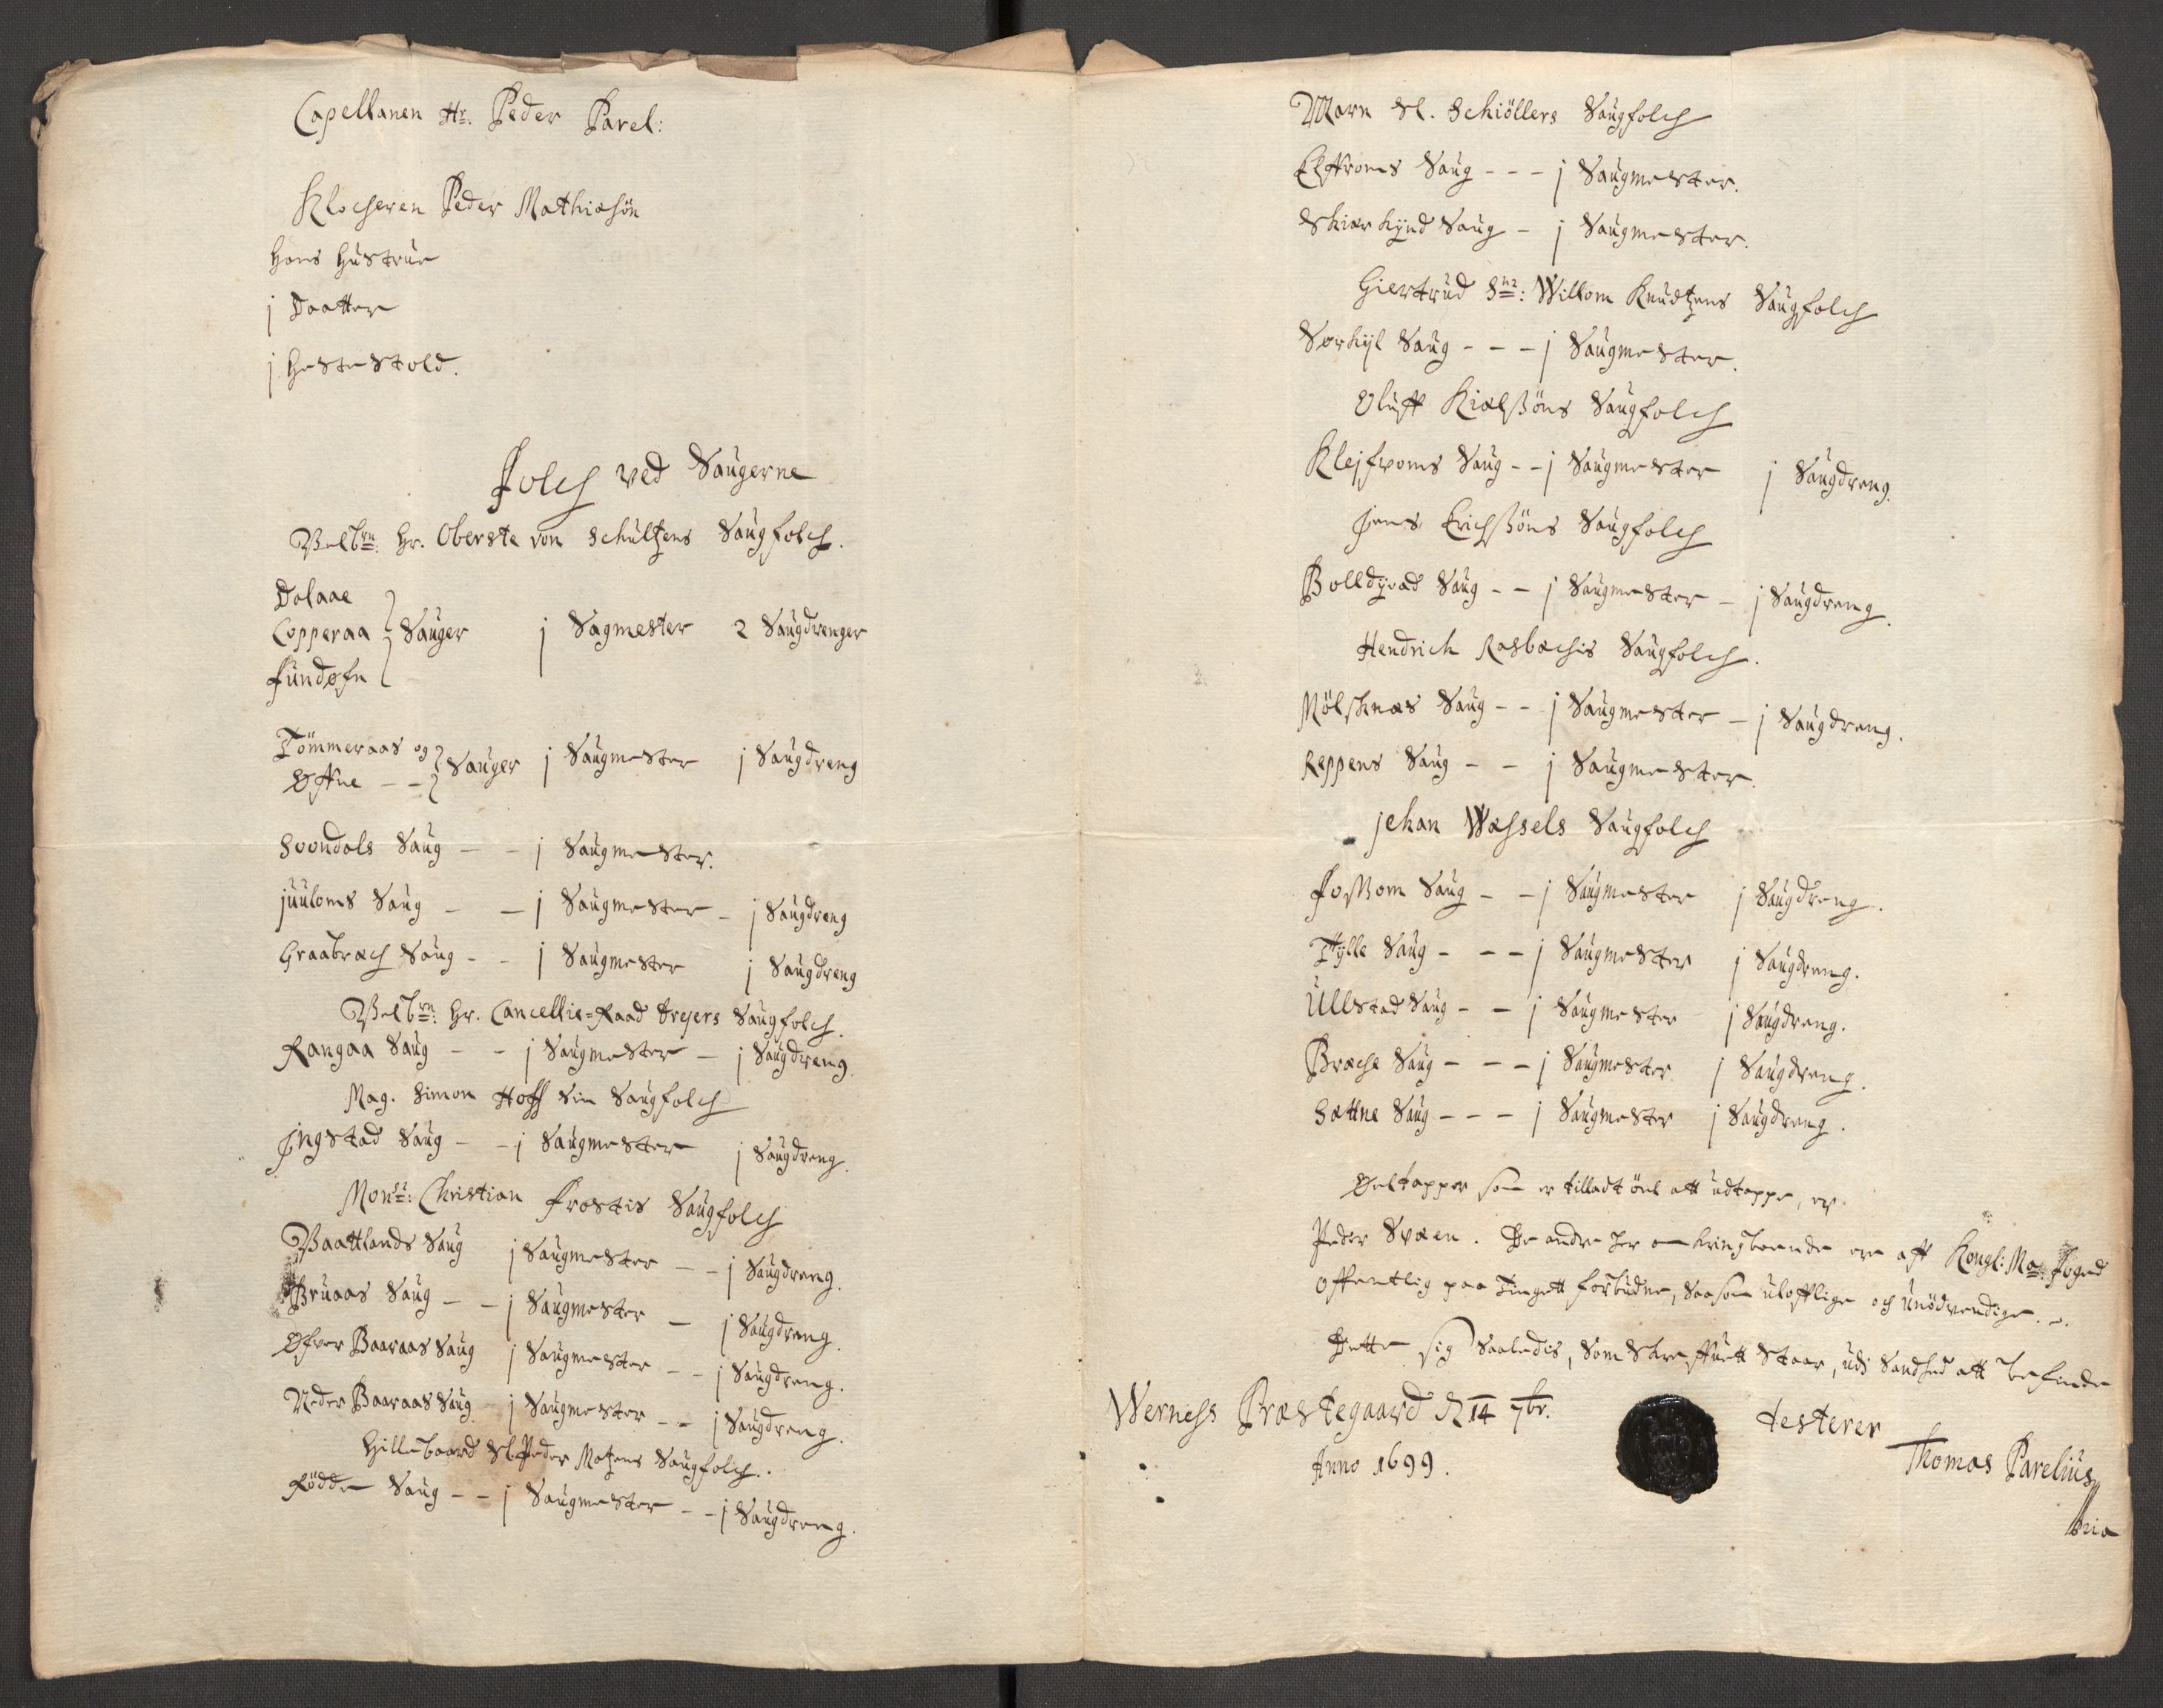 Capellanen Hr. Peder Parel:
Klocheren Peder Mathiesön
hans hustrue
j Daatter
j hestestold.
Folch ved Saugerne
Velbrn: Hr. Oberste von Schultzens Saugfolch.
Dalaae
Copperaa Sauger j Sagmester 2 Saugdrenger
Fundøfn
Tömmeraas og
Offne - - Sauger j Saugmester j Saugdreng
Svondals Saug - - j Saugmester.
juuloms Saug - - j Saugmester - j Saugdreng
Graabræch Saug - - j Saugmester j Saugdreng
Velbrn: Hr. Cancellie-Raad Drejers Saugfolch.
Rangaa Saug - - j Saugmester - j Saugdreng.
Mag. Simon Hoff sin Saugfolch
Jngstad Saug - - j Saugmester j Saugdreng.
Monsr: Christian Frostis Saugfolch
Vaattlands Saug j Saugmester - - j Saugdreng.
Bruaas Saug - - j Saugmester - j Saugdreng.
Øfver Baaraas Saug j Saugmester - - j Saugdreng.
Neder Baaraas Saug - j Saugmester - - j Saugdreng.
Hillebaard Sl. Peder Matzens Saugfolch.
Rödde Saug - - j Saugmester - - j Saugdreng.
Maren Sl. Schiöllers Saugfolch
Elffroms Saug - - - j Saugmester.
Skierkynd Saug - j Saugmester.
Giertrud Sl: Willom Knudtzens Saugfolch
Sorkyl Saug - - - j Saugmester.
Oluff Kielsöns Saugfolch
Klejfroms Saug - - j Saugmester j Saugdreng.
Jens Erichsöns Saugfolch
Bolldyrad Saug - - j Saugmester - j Saugdreng.
Hendrich Rasbechis Saugfolch.
Mölsknæs Saug - - j Saugmester - j Saugdreng.
Reppens Saug - - j Saugmester.
jehan Wessels Saugfolch
Fossom Saug - - j Saugmester j Saugdreng.
Tylle Saug - - - j Saugmester j Saugdreng.
Ullstad Saug - - j Saugmester j Saugdreng.
Bræche Saug - - - j Saugmester j Saugdreng.
Sættne Saug - - - j Saugmester j Saugdreng.
Øeltapper som er tilladt öel att udtappe, er
Peder Svæen. De andre her omkringboende ere aff Kongl: Ma: Foged
offentlig paa Tingett forbudne, saasom ulofflige och unödvendige.
Dette sig saaledis, som skreffuett staar, udj Sandhed att befinde
testerer
Werness Præstegaard d 14 7br.
Anno 1699.
Thomas Parelius
mia